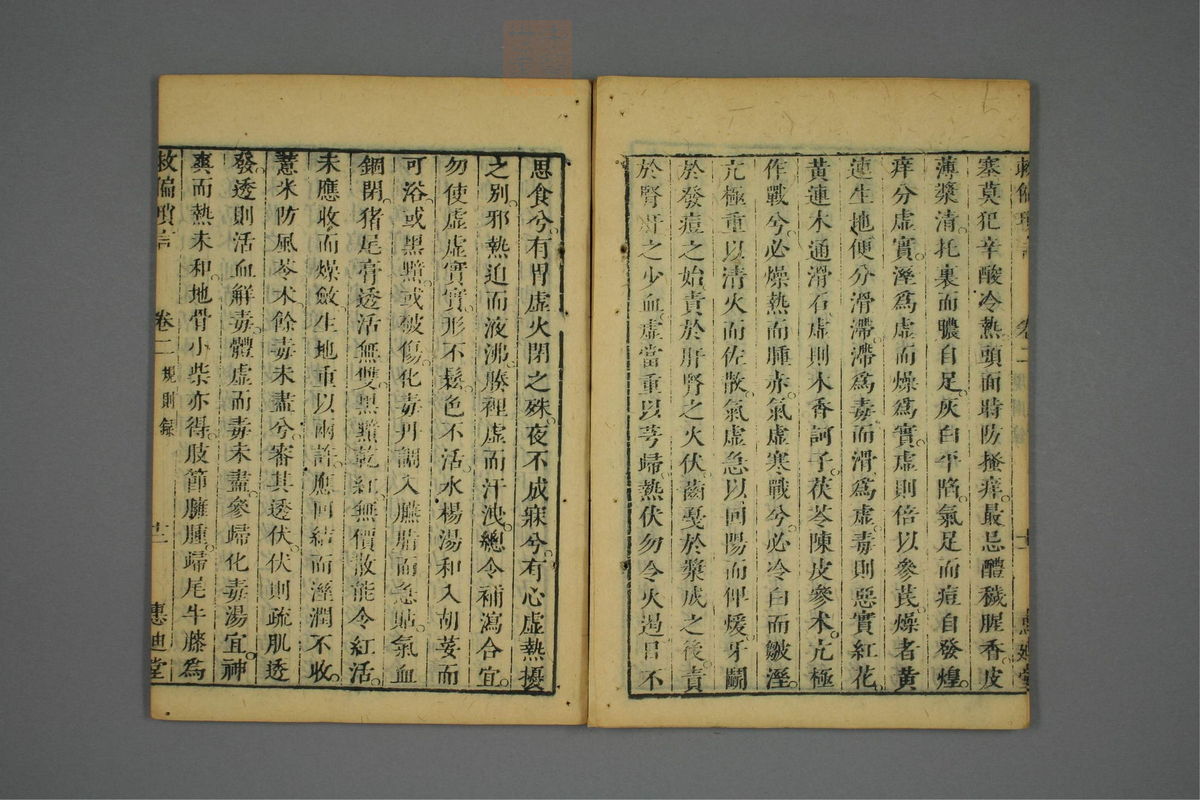 救偏瑣言 卷二 十一 惠迪堂
塞莫犯辛酸冷熱頭面時防搔痒最忌醴穢腥香皮
薄漿清托裏而膿自足灰白平陷氣足而痘自發煌
痒分虛實溼爲虛而燥爲實虛則倍以參芪燥者黃
連生地便分滑滯滯爲毒而滑爲虛毒則惡實紅花
黃連木通滑石虛則木香訶子茯苓陳皮參术亢極
作戰兮必燥熱而腫赤氣虛寒戰兮必冷白而皺溼
亢極重以清火而佐散氣虛急以回陽而伸煖牙鬭
於發痘之始責於肝腎之火伏齒戞於漿成之後責
於腎肝之少血虛當重以芎歸熱伏勿令火過目不
思食兮有胃虛火閉之殊夜不成寐兮有心虛熱擾
之別邪熱迫而液沸腠裡虛而汗洩總令補瀉合宜
勿使虛虛實實形不鬆色不活水楊湯和入胡荽而
可浴或黑黯或破傷化毒丹調入臙脂而急貼氣血
錮閉猪尾膏透活無雙黑黯乾紅無價散能令紅活
未應收而燥斂生地重以兩許應回結而溼潤不收
薏米防風苓术餘毒未盡兮審其透伏伏則疏肌透
發透則活血解毒體虛而毒未盡參歸化毒湯宜神
爽而熱未和地骨小柴亦得肢節臃腫歸尾牛膝爲
救偏瑣言 卷二 規則錄 十二 惠迪堂